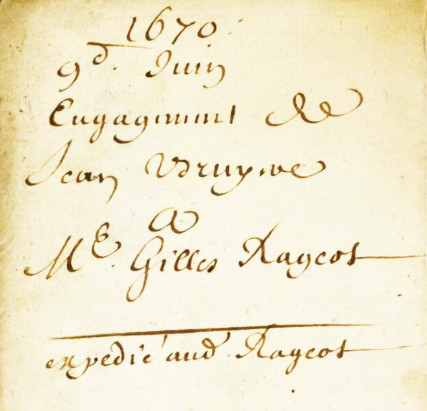 1670
9d. Juin
Engagement de
Jean
A
Me. Gilles Rageot
expedié aud. Rageot